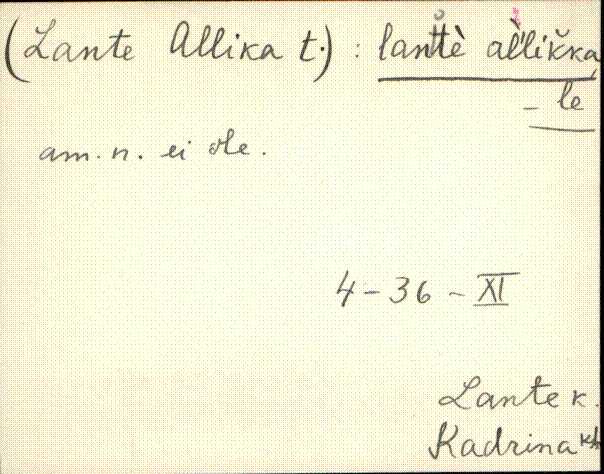 (Lante Allika t.) : lantтè àllikka
- le
am. n. ei ole.
4 - 36 - XI
Lante k.
Kadrina khk